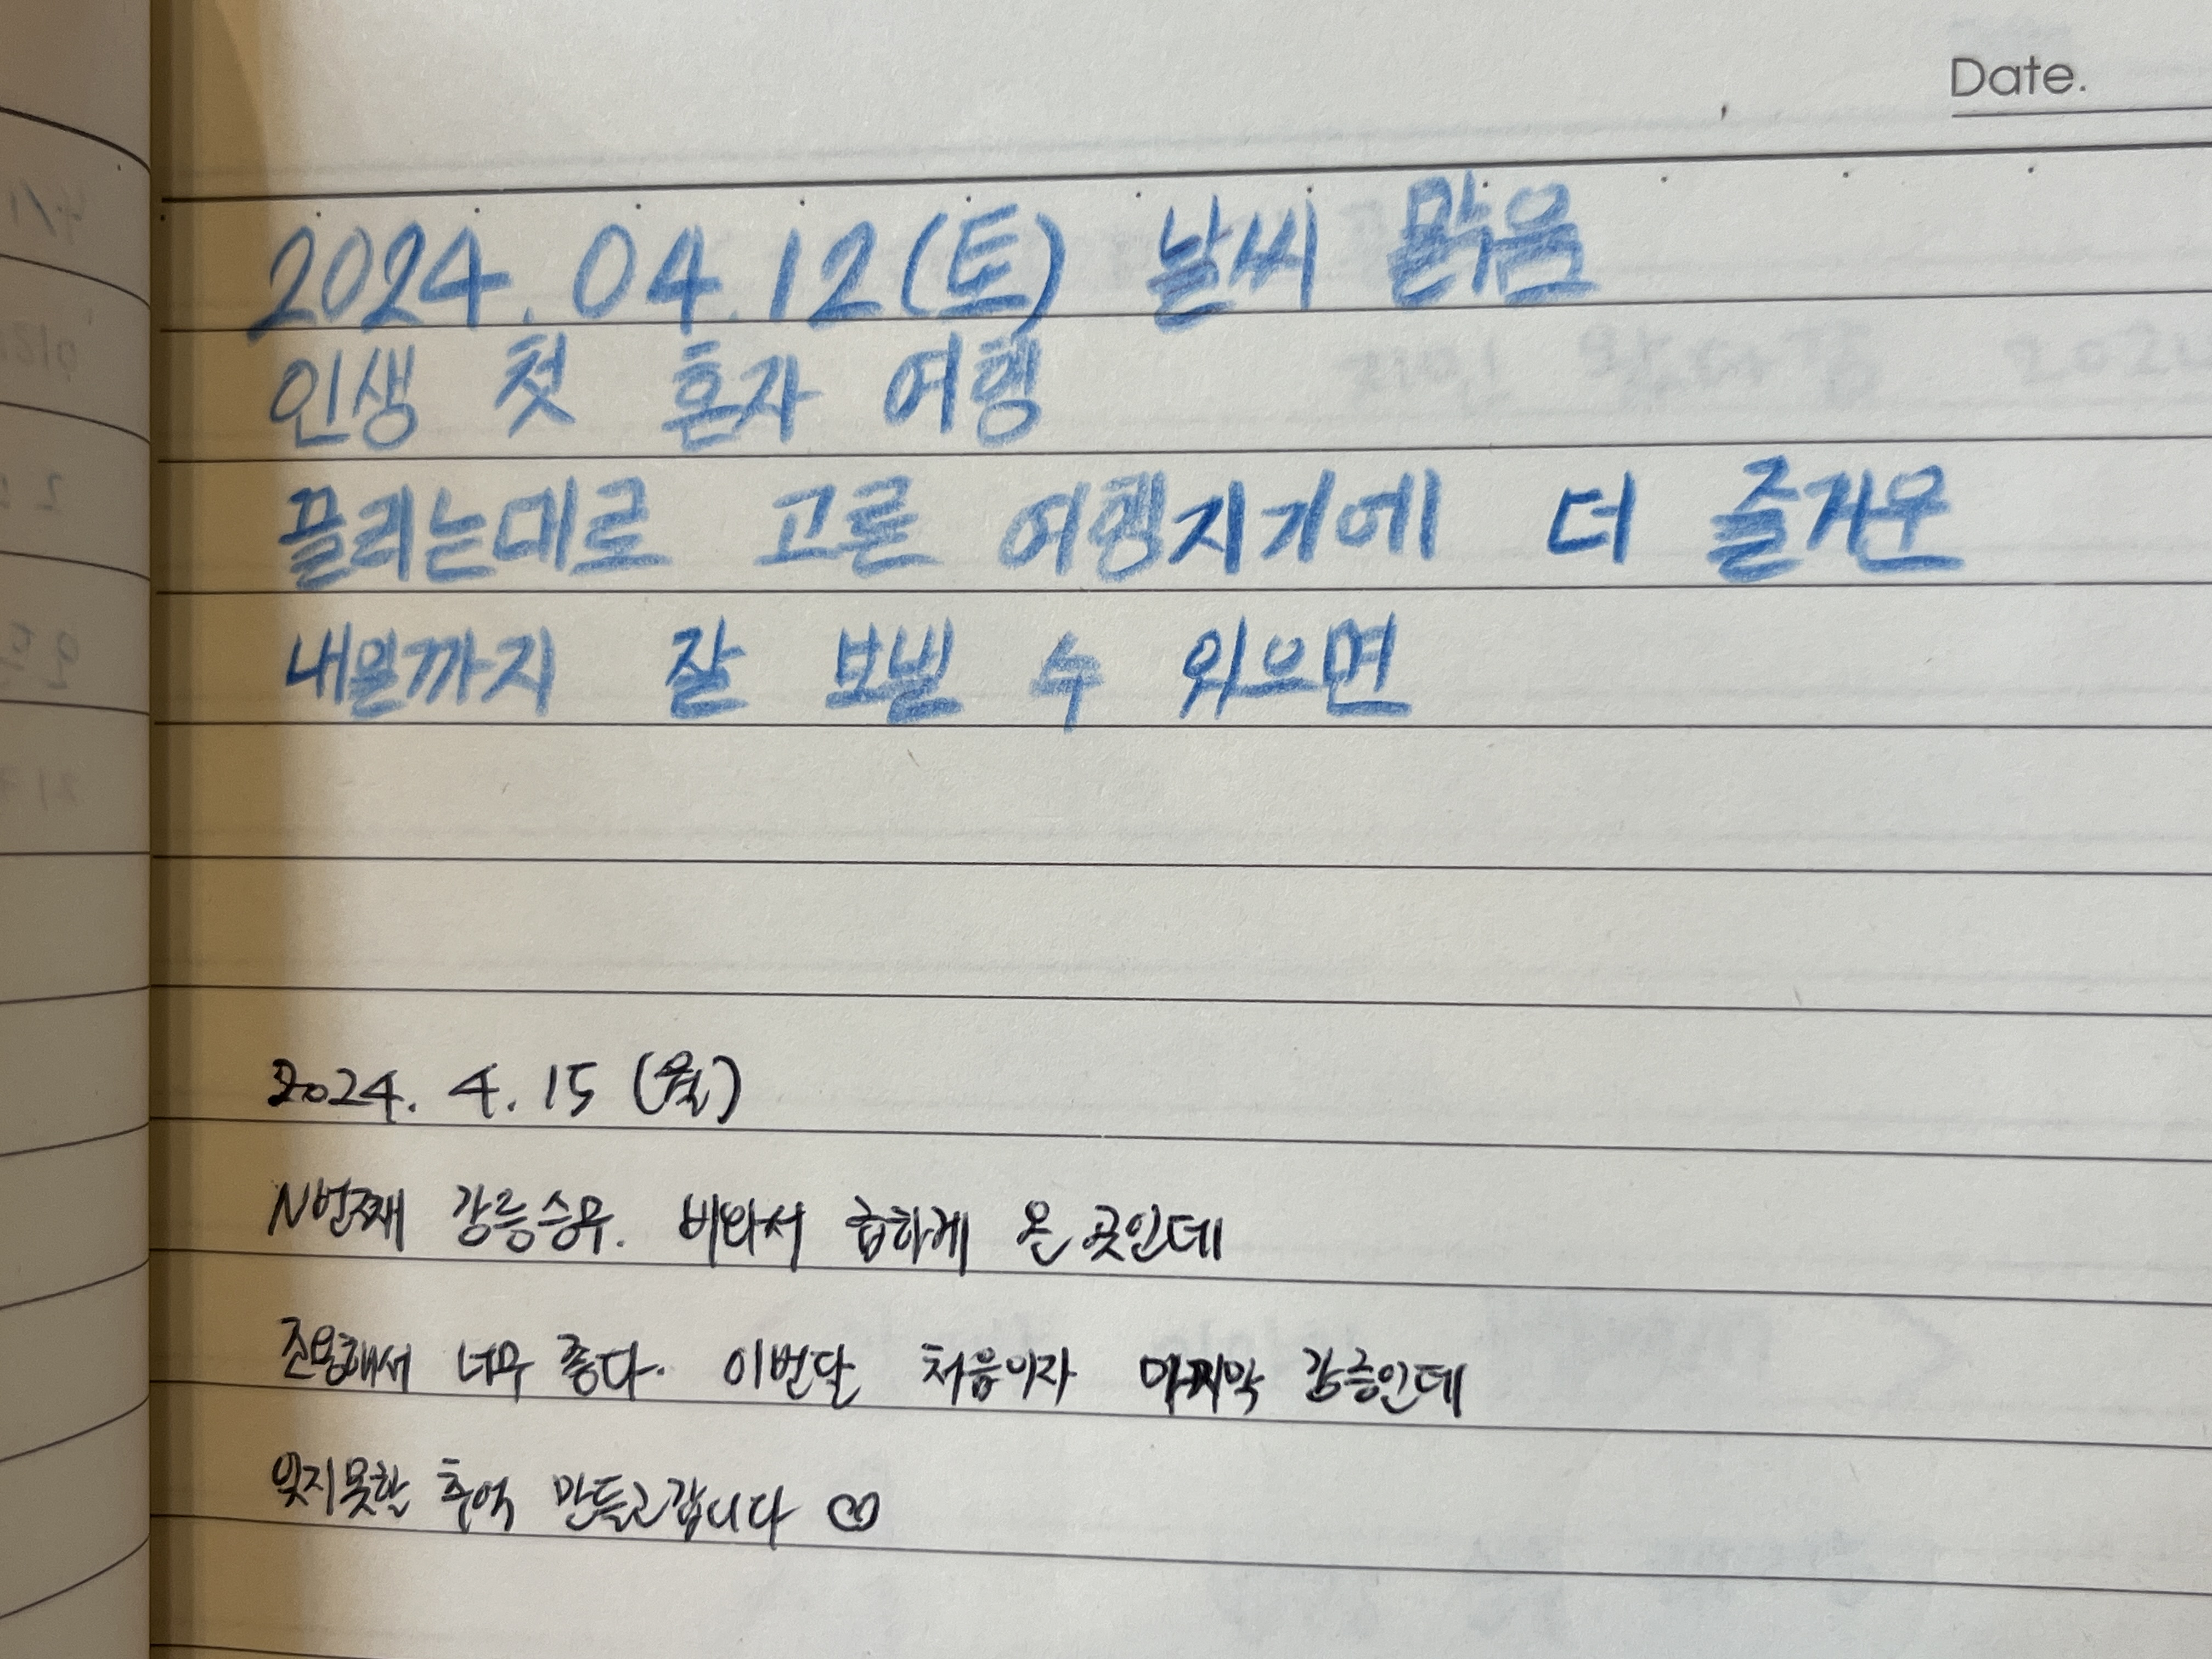 Date.
2024.04.12(토) 날씨 맑음
인생 첫 혼자 여행
끌리는대로 고른 여행지기에 더 즐거운
내일까지 잘 보낼 수 있으면
2024. 4. 15 (월)
N번째 강릉승무. 비와서 급하게 온 곳인데
조용해서 너무 좋다. 이번달 처음이자 마지막 강릉인데
잊지못할 추억 만들고갑니다 ♡